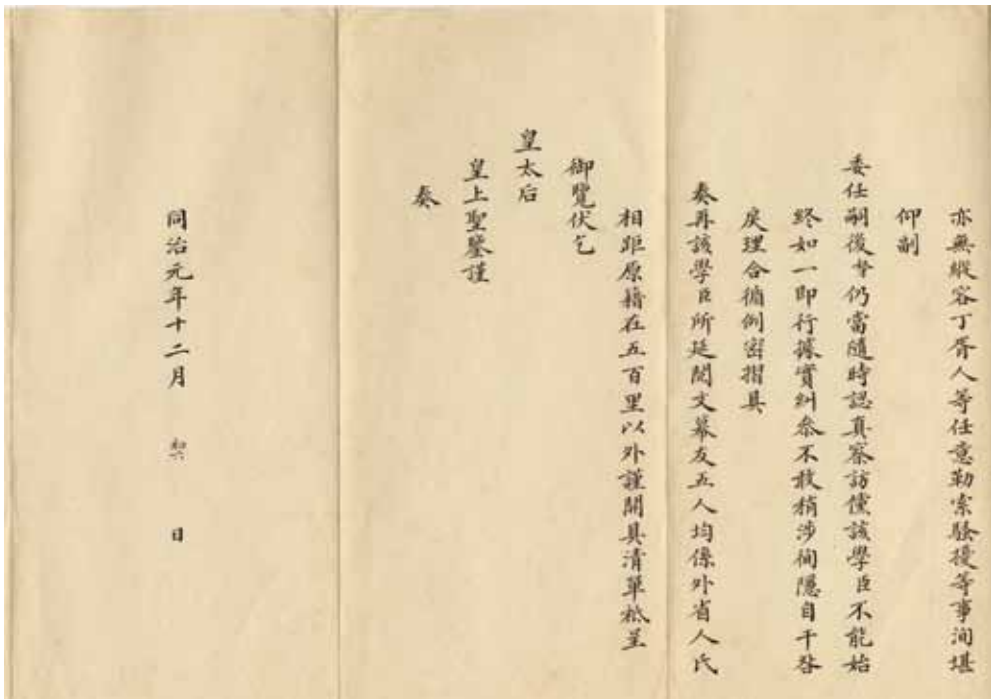 亦無縱容丁胥人等任意勒索騷擾等事洵堪
仰副
委任嗣後等仍當隨時認真察訪儻該學臣不能始
終如一即行據實糾叅不敢稍涉徇隱自干咎
戾理合循例密摺具
奏再該學臣所延閱文幕友五人均係外省人氏
相距原籍在五百里以外謹開具清單祗呈
御覽伏乞
皇太后
皇上聖鑒謹
奏
同治元年十二月 日